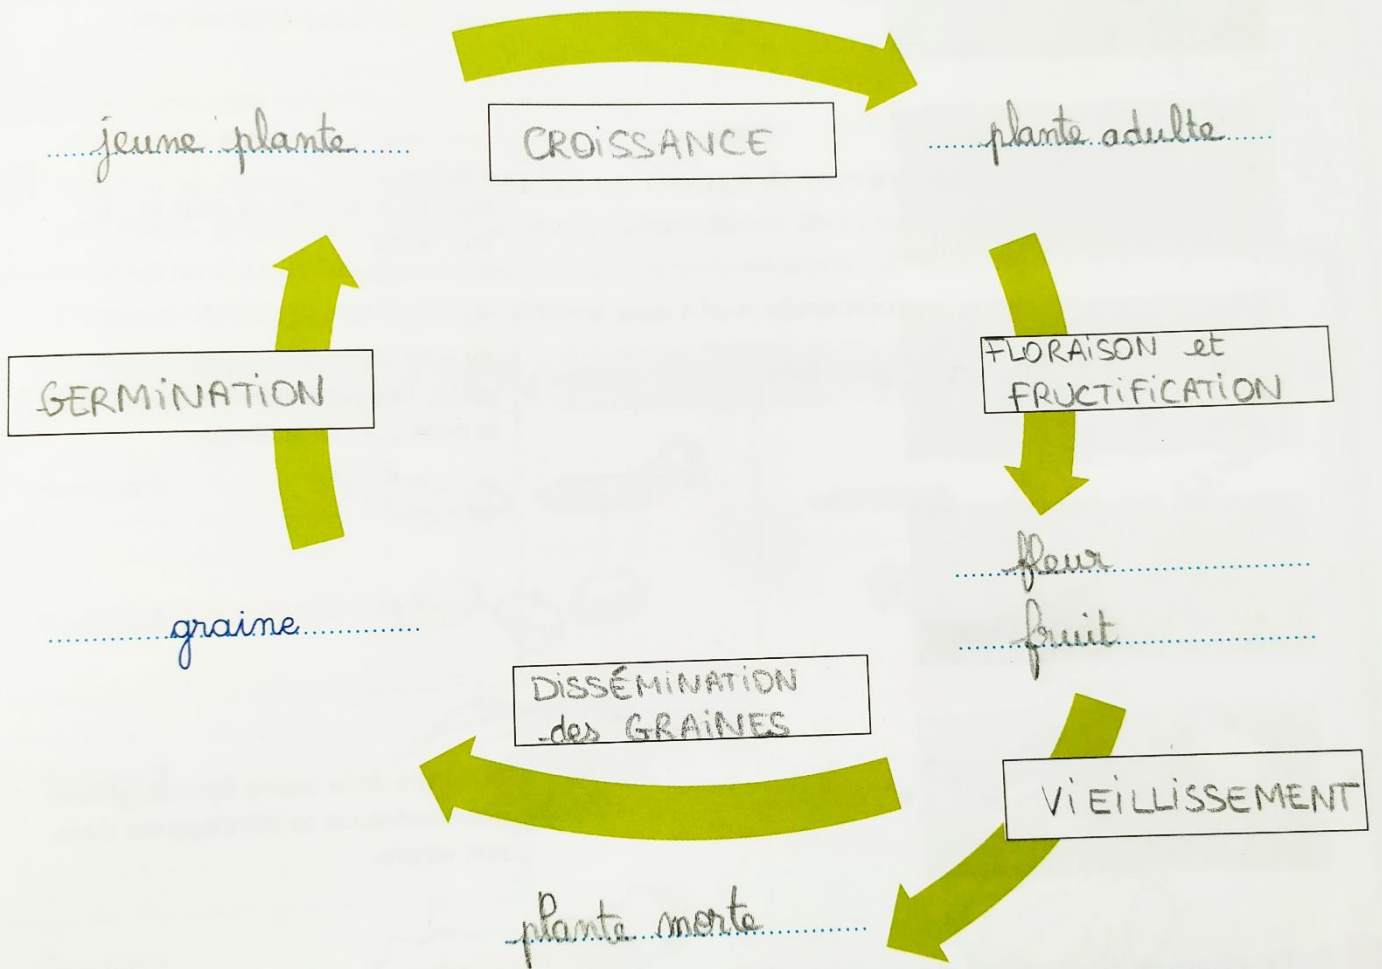 jeune plante
CROISSANCE
plante adulte
GERMINATION
FLORAISON et
FRUCTIFICATION
fleur
fruit
graine
DISSÉMINATION
des GRAINES
VIEILLISSEMENT
plante morte